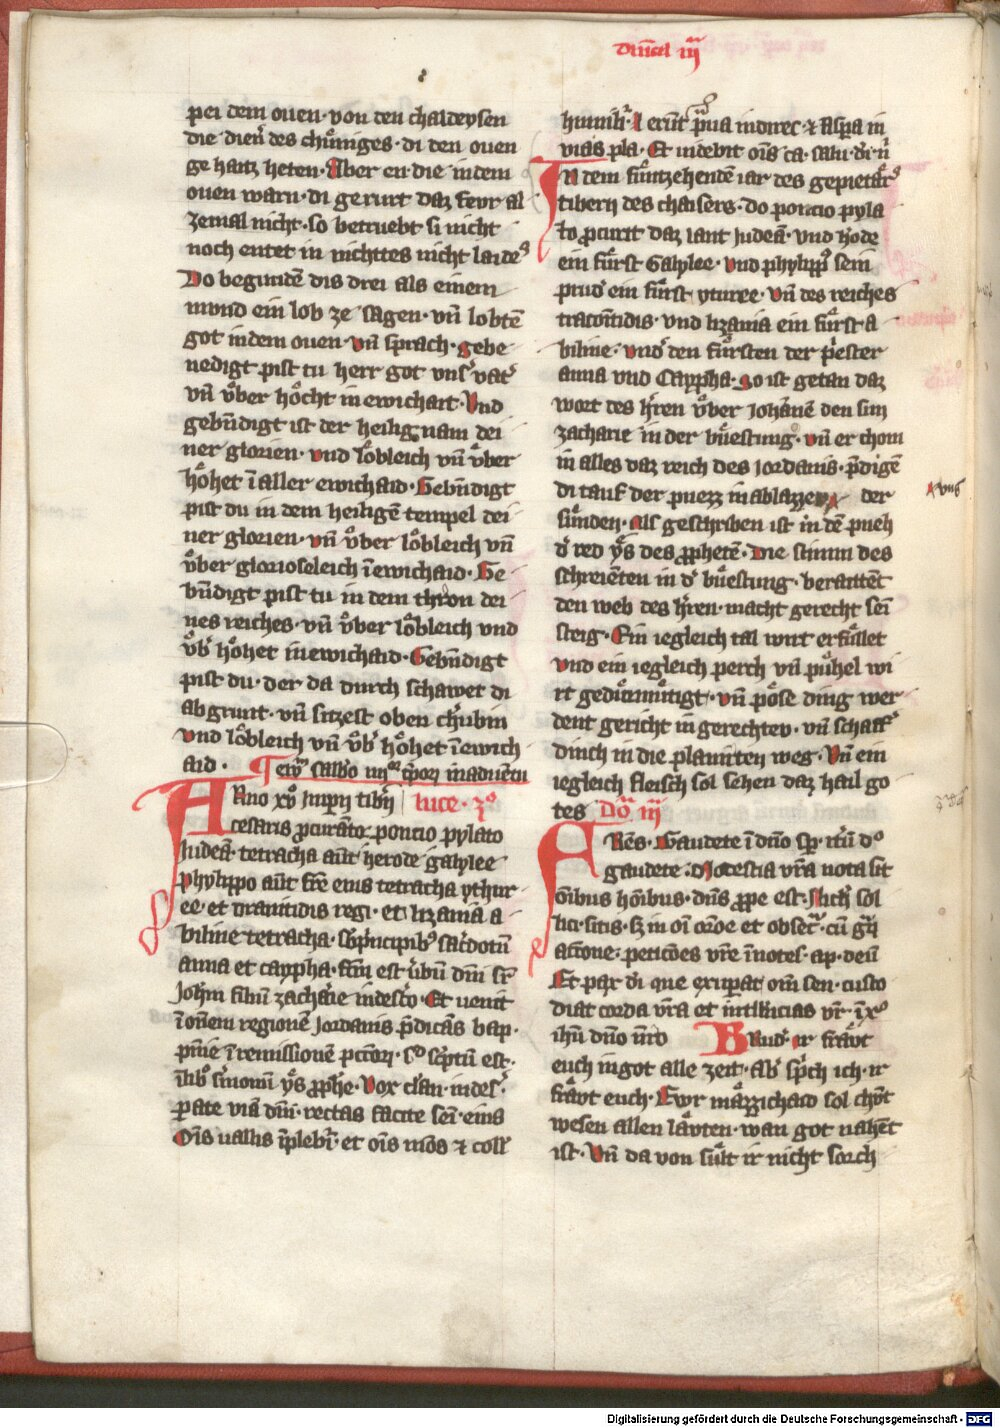 Dnical iij
pei dem ouen · von den chaldeysen
die dien̄ des chůniges · di den ouen
ge haitz heten · Aber en die in dem
ouen warn · di gerurt daz fevr al
zemal nicht · so betruebt si nicht
noch entet in nichttes nicht laides
Do begundē dis drei als einem
mund ein lob ze sagen · vn̄ lobtē
got in dem ouen · vn̄ sprach · gebe
nedigt pist tu herr got vnsˀ vatˀ
vn̄ vͤber hoͤcht in ewichait · Vnd
gebn̄digt ist der heilig nam dei
ner glorien · vnd loͤbleich vn̄ vͤber
hoͤhet ī aller ewichaid · Gebn̄digt
pist du in dem heiligē tempel dei
ner glorien · vn̄ vͤber loͤbleich vn̄
vͤber glorioseleich ī ewichaid · Ge
bn̄digt pist tu in dem thron dei
nes reiches · vn̄ vͤber loͤbleich vnd
vͤbˀ hoͤhet in ewichaid · Gebn̄digt
pist du · der da durch schawet di
abgrunt · vn̄ sitzest oben cherubin
vnd loͤbleich vn̄ vͤbˀ hoͤhet ī ewich
aid · sabb̄o iiijor t̄por in aduentu
ANno xvͦ Imp̄ij tib̄ij luce · 3ͦ
cesaris p̄curāto poncio pylato
Iudeā · tetracha aūt herode galylee
Phylippo aūt fr̄e eius tetracha ythur
ee · et tranitidis regi · et lizania a
biline tetracha · sb̄ p̄ncipibꝰ sac̄dotū
anna et cayppha · fc̄m est v̄bū dn̄i sr̄
Joh̄m filiū zacharie in des̄to · Et uenit
ī om̄em regionē Jordanis p̄dicās bap ·
p̄nie ī remissionē pc̄cor · sͨ sc̄ptū est ·
ī lib̄ s̄monū ys̄ p̄phe · Vox cla̅n · in desˀ
parate viā dn̄i · rectas facite sēi · eius
Om̄s uallis īplebiˀ · et om̄s mōs ⁊ coll
humilibˀ · Et erūt p̄ua in direc · ⁊ asp̄a in
vias pla · Et uidebit om̄s ca · salu · di · n̄
In dem fuͤntzehendē iar des gepietaͤrˢ
tibery des chaisers · do poncio pyla
to p̄curit daz lant Iudeā · vnd hode
ein fuͤrst Galylee · vnd phylippꝰ sein
prud ein fuͤrst yturee · vn̄ des reiches
traconitidis · vnd lizania ein fuͤrst a
biline · vnd den fuͤrsten der p̄iester
anna vnd Cayppha · So ist getan daz
wort des h̄ren vͤber Johānē den sun
zacharie in der wuͤestung · vn̄ er chom
in alles daz reich des Jordanis · p̄digē
di tauf der puezz in ablazzen der
suͤnden · als geschriben ist in dē puch
dˀ red ys̄ des p̄phetē · Die stimm des
schreienten in dˀ wuͤestung · beraittēt
den weh des h̄ren · macht gerecht sei
steig · Ein iegleich tal wirt erfuͤllet
vnd ein iegleich perch vn̄ puͤhel wi
rt gediͤemuͤtigt · vn̄ poͤse ding wer
dent gericht in gerechten · vn̄ scharfˀ
dinch in die plaimten weg · Vn̄ ein
iegleich fleisch sol sehen daz hail go
tes Doͣ iij
FRēs · Gaudete ī dn̄o sp̄ · itū dͦ
gaudete · Modestia vr̄a nota sit
om̄ibus hōibus · dn̄s p̄pe est · Nichˀ sol
lici · sitis · sz̄ in oī or̄one et obsecrͣ · cū gr̄
actione · peticōes vr̄e īnotesˀ · ap · deū
Et pax di que exup̄at om̄ sen · custo
diat corda vr̄a et intlligncias vr̄ · ī xͦ
ihū dn̄o nr̄o Brudˀ · ir fraͤvt
euch in got alle zeit · abˀ sprich ich · ir
fraͤvt euch · Ewr maͤzzichaid sol chvt
wesen allen laͤvten · wan got nahet
ist · Vn̄ da von suͤlt ir nicht sorch